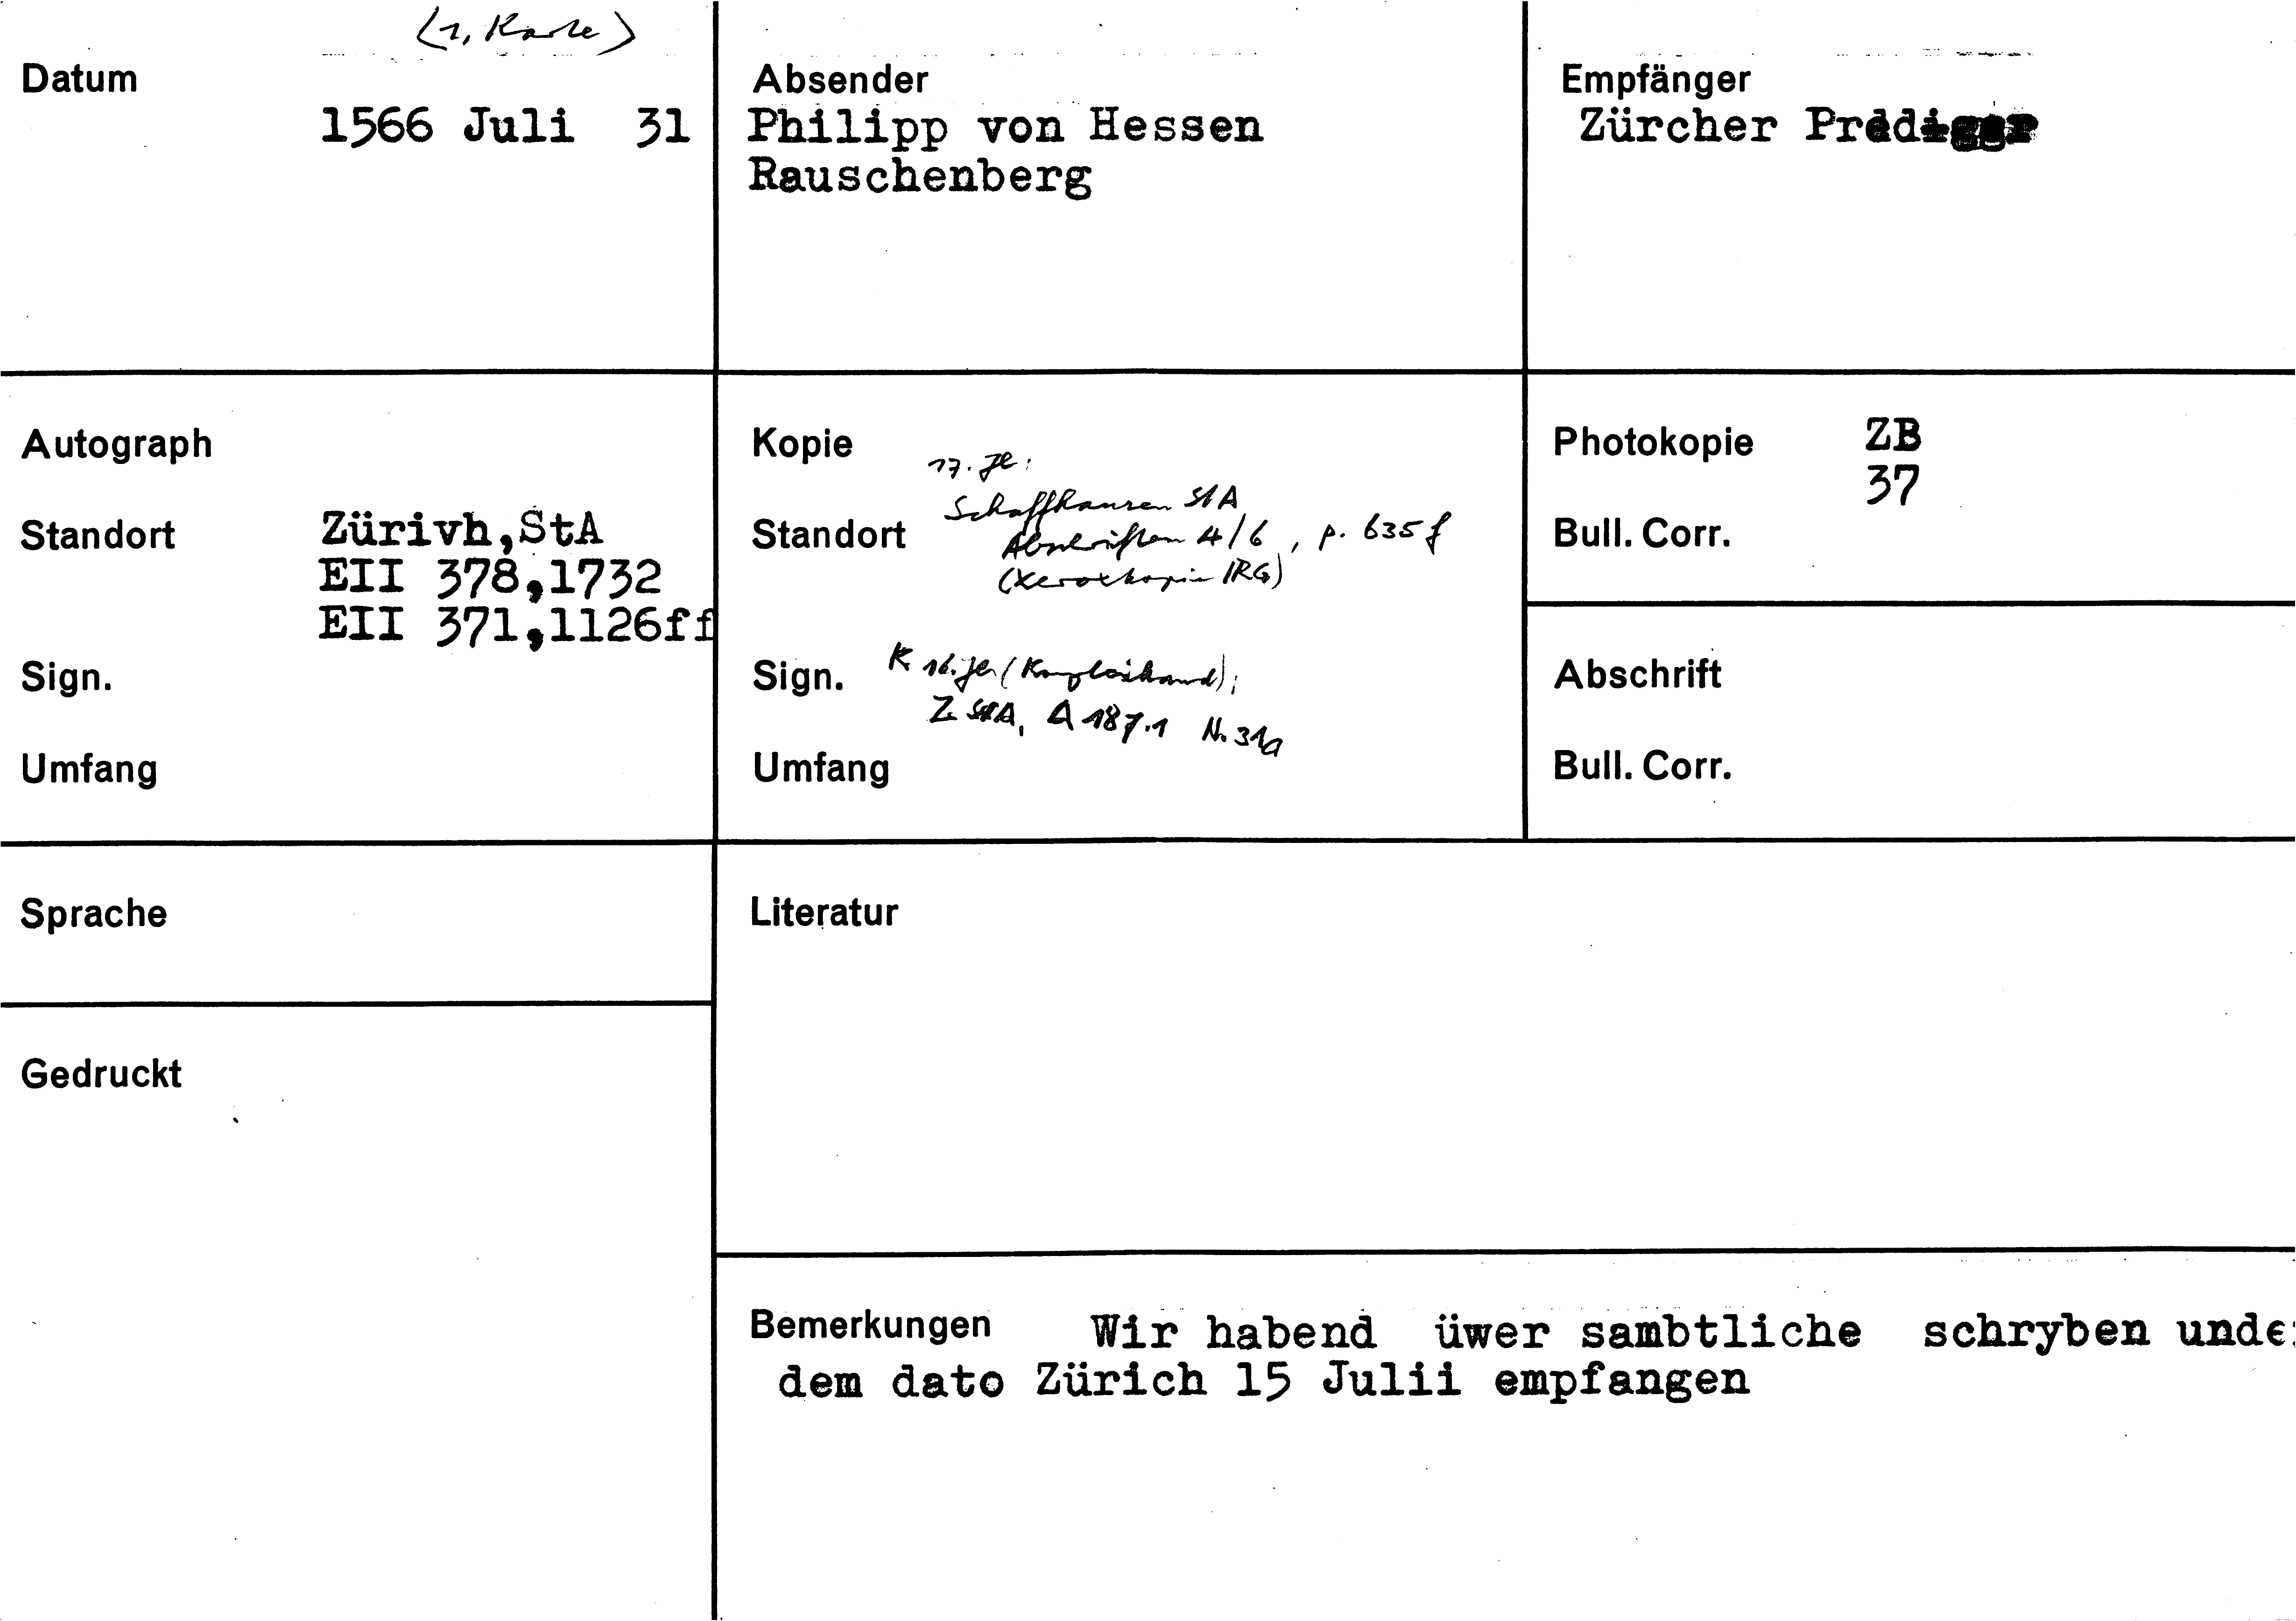 (1, Karte)
Datum
1566 Juli 31
Absender
Philipp von Hessen
Rauschenberg
Empfänger
Zürcher Prediger
Autograph
Standort
Zürivh,StA
EII 378,1732
EII 371,1126ff
Sign.
Umfang
Kopie
17. Jh.
Schaffhausen StA
Standort
Abschriften 4/6, p. 635 f
(Xerokopie IRG)
Sign.
K 16. Jh (Kanzleihand);
Z StA, A 187.1 N. 31a
Umfang
Photokopie
ZB
37
Bull. Corr.
Abschrift
Bull. Corr.
Sprache
Literatur
Gedruckt
Bemerkungen
Wir habend üwer sambtliche schryben unde
dem dato Zürich 15 Julii empfangen